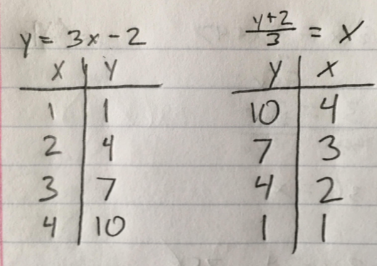 y = 3x - 2
x y
1 1
2 4
3 7
4 10
y+2/3 = x
y x
10 4
7 3
4 2
1 1